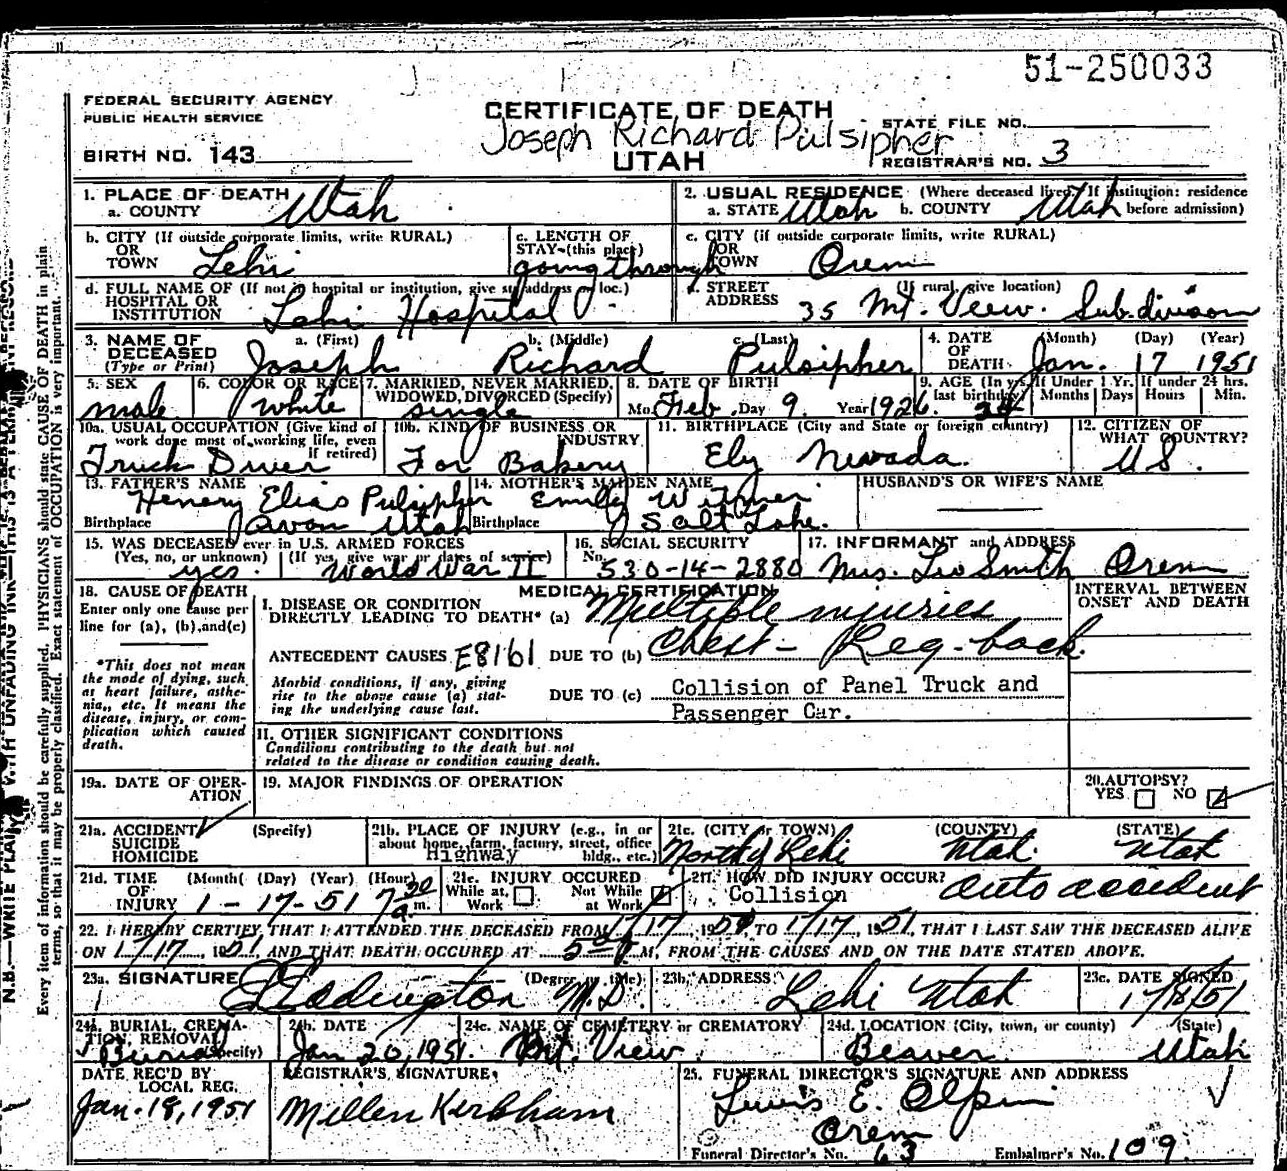 51-250033
FEDERAL SECURITY AGENCY
PUBLIC HEALTH SERVICE
CERTIFICATE OF DEATH
STATE FILE NO.
Joseph Richard Pulsipher
BIRTH NO. 143
UTAH
REGISTRAR'S NO. 3
1. PLACE OF DEATH
a. COUNTY Utah
2. USUAL RESIDENCE (Where deceased lived. If institution: residence before admission)
a. STATE Utah b. COUNTY Utah
b. CITY (If outside corporate limits, write RURAL)
OR TOWN Lehi
c. LENGTH OF STAY (this place) going through
c. CITY (if outside corporate limits, write RURAL)
OR TOWN Orem
d. FULL NAME OF (If not in hospital or institution, give st. address or loc.)
HOSPITAL OR INSTITUTION Lehi Hospital
STREET ADDRESS (If rural, give location)
35 Mt. View. Subdivison
3. NAME OF DECEASED (Type or Print)
a. (First) Joseph b. (Middle) Richard c. (Last) Pulsipher
4. DATE OF DEATH (Month) (Day) (Year) Jan. 17 1951
5. SEX male
6. COLOR OR RACE white
7. MARRIED, NEVER MARRIED, WIDOWED, DIVORCED (Specify) single
8. DATE OF BIRTH Mo. Feb. Day 9. Year 1926.
9. AGE (In yrs. last birthday) 24 If Under 1 Yr. Months Days If under 24 hrs. Hours Min.
10a. USUAL OCCUPATION (Give kind of work done most of working life, even if retired) Truck Driver
10b. KIND OF BUSINESS OR INDUSTRY For Bakery
11. BIRTHPLACE (City and State or foreign country) Ely Nevada.
12. CITIZEN OF WHAT COUNTRY? U.S.
13. FATHER'S NAME Henery Elias Pulsipher
Birthplace Avon Utah
14. MOTHER'S MAIDEN NAME Emily Witmer
Birthplace Salt Lake.
HUSBAND'S OR WIFE'S NAME
15. WAS DECEASED ever in U.S. ARMED FORCES
(Yes, no, or unknown) yes. (If yes, give war or dates of service) World War II
16. SOCIAL SECURITY No. 530-14-2880
17. INFORMANT and ADDRESS Mrs. Leo Smith Orem
18. CAUSE OF DEATH
Enter only one cause per line for (a), (b), and (c)
*This does not mean the mode of dying, such as heart failure, asthenia, etc. It means the disease, injury, or complication which caused death.
MEDICAL CERTIFICATION
INTERVAL BETWEEN ONSET AND DEATH
I. DISEASE OR CONDITION DIRECTLY LEADING TO DEATH* (a) Multiple injuries
ANTECEDENT CAUSES E8161 DUE TO (b) Chest - Leg - back.
Morbid conditions, if any, giving rise to the above cause (a) stating the underlying cause last.
DUE TO (c) Collision of Panel Truck and
Passenger Car.
II. OTHER SIGNIFICANT CONDITIONS
Conditions contributing to the death but not related to the disease or condition causing death.
19a. DATE OF OPERATION
19. MAJOR FINDINGS OF OPERATION
20. AUTOPSY? YES NO
21a. ACCIDENT SUICIDE HOMICIDE (Specify)
21b. PLACE OF INJURY (e.g., in or about home, farm, factory, street, office bldg., etc.) Highway
21c. (CITY or TOWN) (COUNTY) (STATE)
North of Lehi Utah. Utah
21d. TIME OF INJURY (Month) (Day) (Year) (Hour) 1-17-51 7 a.m.
21e. INJURY OCCURED While at Work Not While at Work
21f. HOW DID INJURY OCCUR? auto accident
Collision
22. I HEREBY CERTIFY, THAT I ATTENDED THE DECEASED FROM 1/17, TO 1/17, 1951, THAT I LAST SAW THE DECEASED ALIVE
ON 1/17, 1951, AND THAT DEATH OCCURED AT M, FROM THE CAUSES AND ON THE DATE STATED ABOVE.
23a. SIGNATURE (Degree or title) Eddington M.D.
23b. ADDRESS Lehi Utah
23c. DATE SIGNED 1/18/51
24a. BURIAL, CREMATION, REMOVAL (Specify) Burial
24b. DATE Jan 20, 1951.
24c. NAME OF CEMETERY or CREMATORY Mt. View.
24d. LOCATION (City, town, or county) (State) Beaver. Utah
DATE REC'D BY LOCAL REG. Jan. 18, 1951
REGISTRAR'S SIGNATURE Millen Kirkham
25. FUNERAL DIRECTOR'S SIGNATURE AND ADDRESS
Lewis E. Olpin
Orem
Funeral Director's No. 63 Embalmer's No. 109.
N.B.—WRITE PLAINLY WITH UNFADING INK
Every item of information should be carefully supplied. PHYSICIANS should state CAUSE OF DEATH in plain
terms, so that it may be properly classified. Exact statement of OCCUPATION is very important.